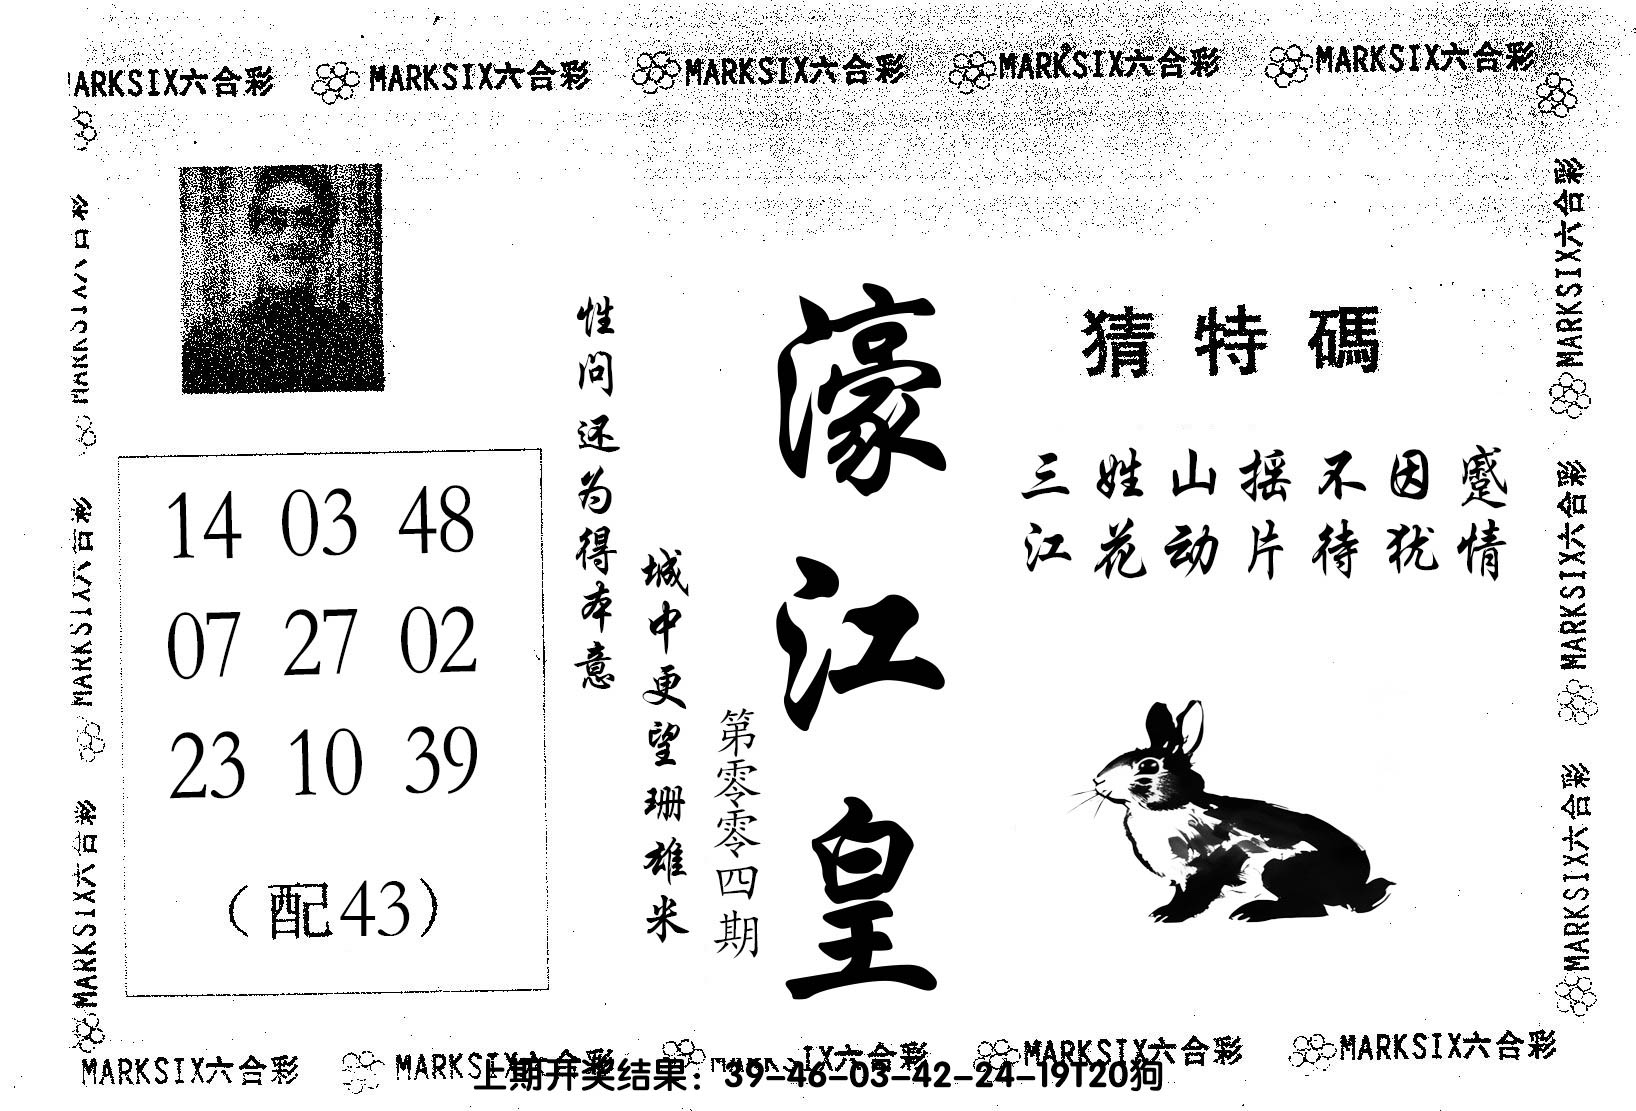 MARKSIX六合彩 MARKSIX六合彩 MARKSIX六合彩 MARKSIX六合彩 MARKSIX六合彩
猜特碼
三姓山摇不因蹙
江花动片待犹情
濠江皇
第零零四期
城中更望珊雄米
性问还为得本意
14 03 48
07 27 02
23 10 39
(配43)
MARKSIX六合彩
MARKSIX六合彩
MARKSIX六合彩
MARKSIX六合彩
MARKSIX六合彩
MARKSIX六合彩
MARKSIX六合彩 MARKSIX六合彩 MARKSIX六合彩 MARKSIX六合彩
上期开奖结果：39-46-03-42-24-19T20狗